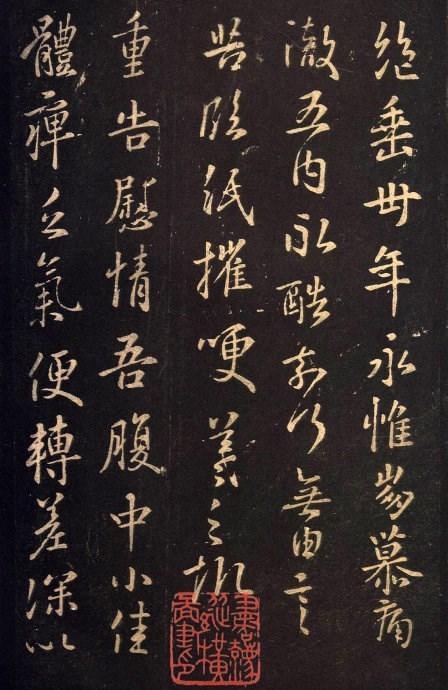 垂卅年永惟崩慕痛
徹五内永酷奈何無由言
告臨紙摧哽羲之報
重告慰情吾腹中小佳
體痺乏氣便轉差深以